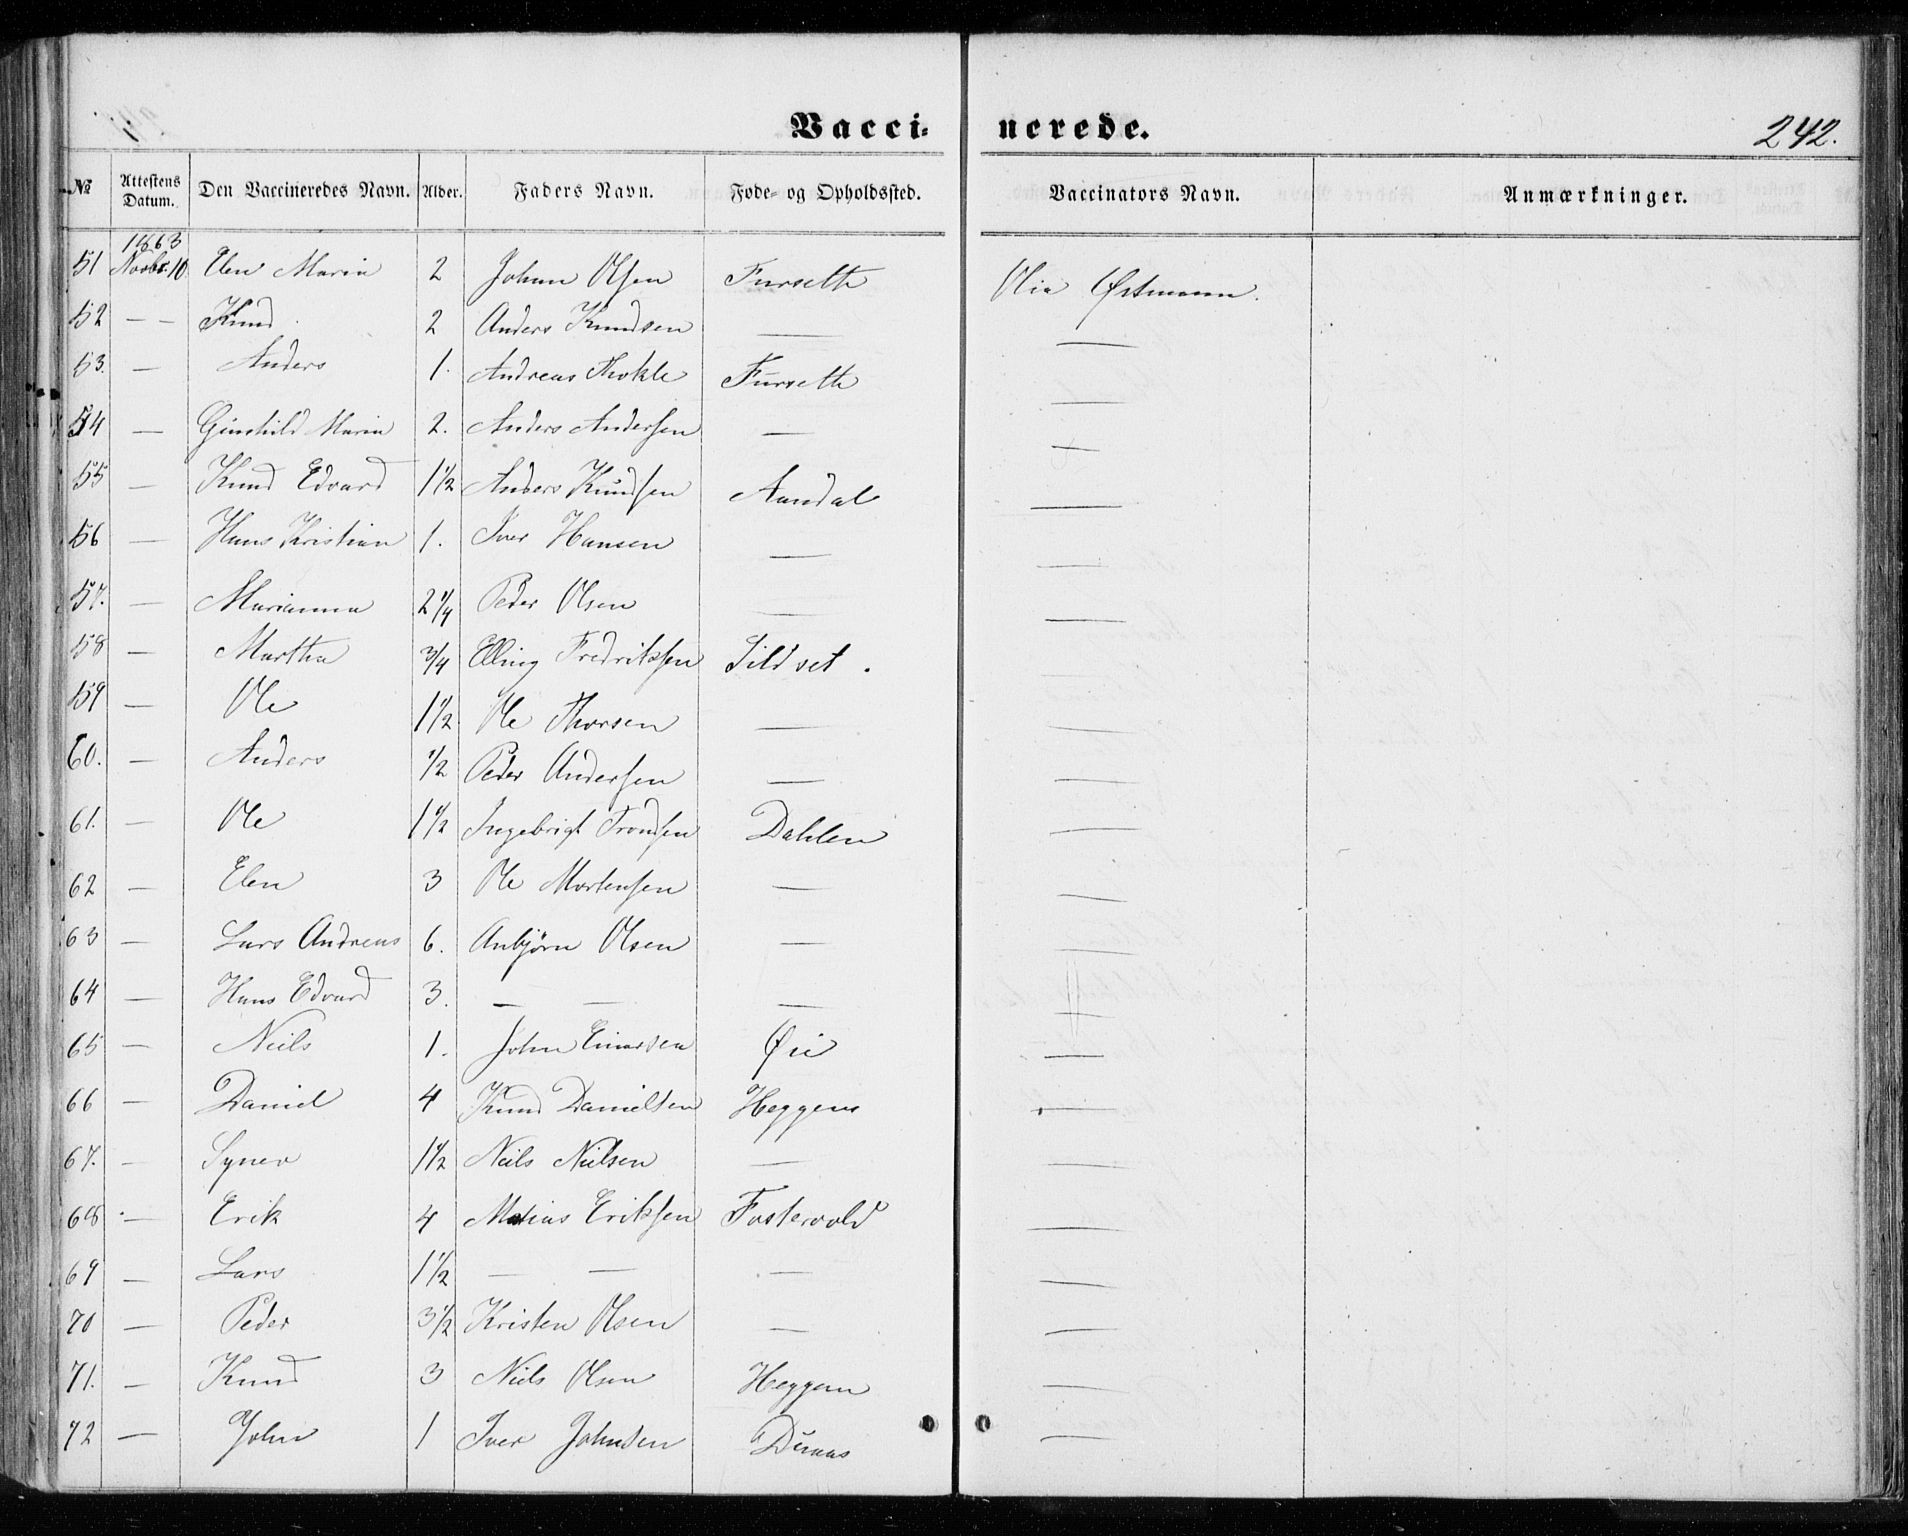 Vaccinerede.
242.
№ Attestens Datum. Den Vaccineredes Navn. Alder. Faders Navn. Føde- og Opholdssted. Vaccinators Navn. Anmærkninger.
1863
51 Novbr 10 Elen Maria 2 Johan Olsen Furseth Olia Østmann.
52 — — Knud 2 Anders Knudsen — —
53. — Anders 1. Andreas Furseth —
54 — Gunhild Maria 2. Anders Andersen — —
55 — Knud Edvard 1½ Anders Knudsen Aandal —
56 — Hans Kristian 1. Iver Hansen — —
57. — Marianna 2¼ Peder Olsen — —
58 — Martha ¾ Elling Fredriksen Sildset. —
59 — Ole 1½ Ole Thorsen — —
60. — Anders ½ Peder Andersen — —
61. — Ole 1½ Ingebrigt Trondsen Dahlen —
62 — Elen 3 Ole Mortensen — —
63 — Lars Andreas 6. Anbjørn Olsen — —
64 — Hans Edvard 3. — — — —
65 — Neils 1. John Einarsen Øie —
66 — Daniel 4 Knud Danielsen Heggem —
67. — Synev 1½ Neils Nielsen — —
68 — Erik 4 Matias Eriksen Fostervold —
69 — Lars 1½ — — — —
70 — Peder 3½ Kristen Olsen — —
71. — Knud 3 Niels Olsen Heggem —
72 — John 1 Iver Johnsen Duaas —